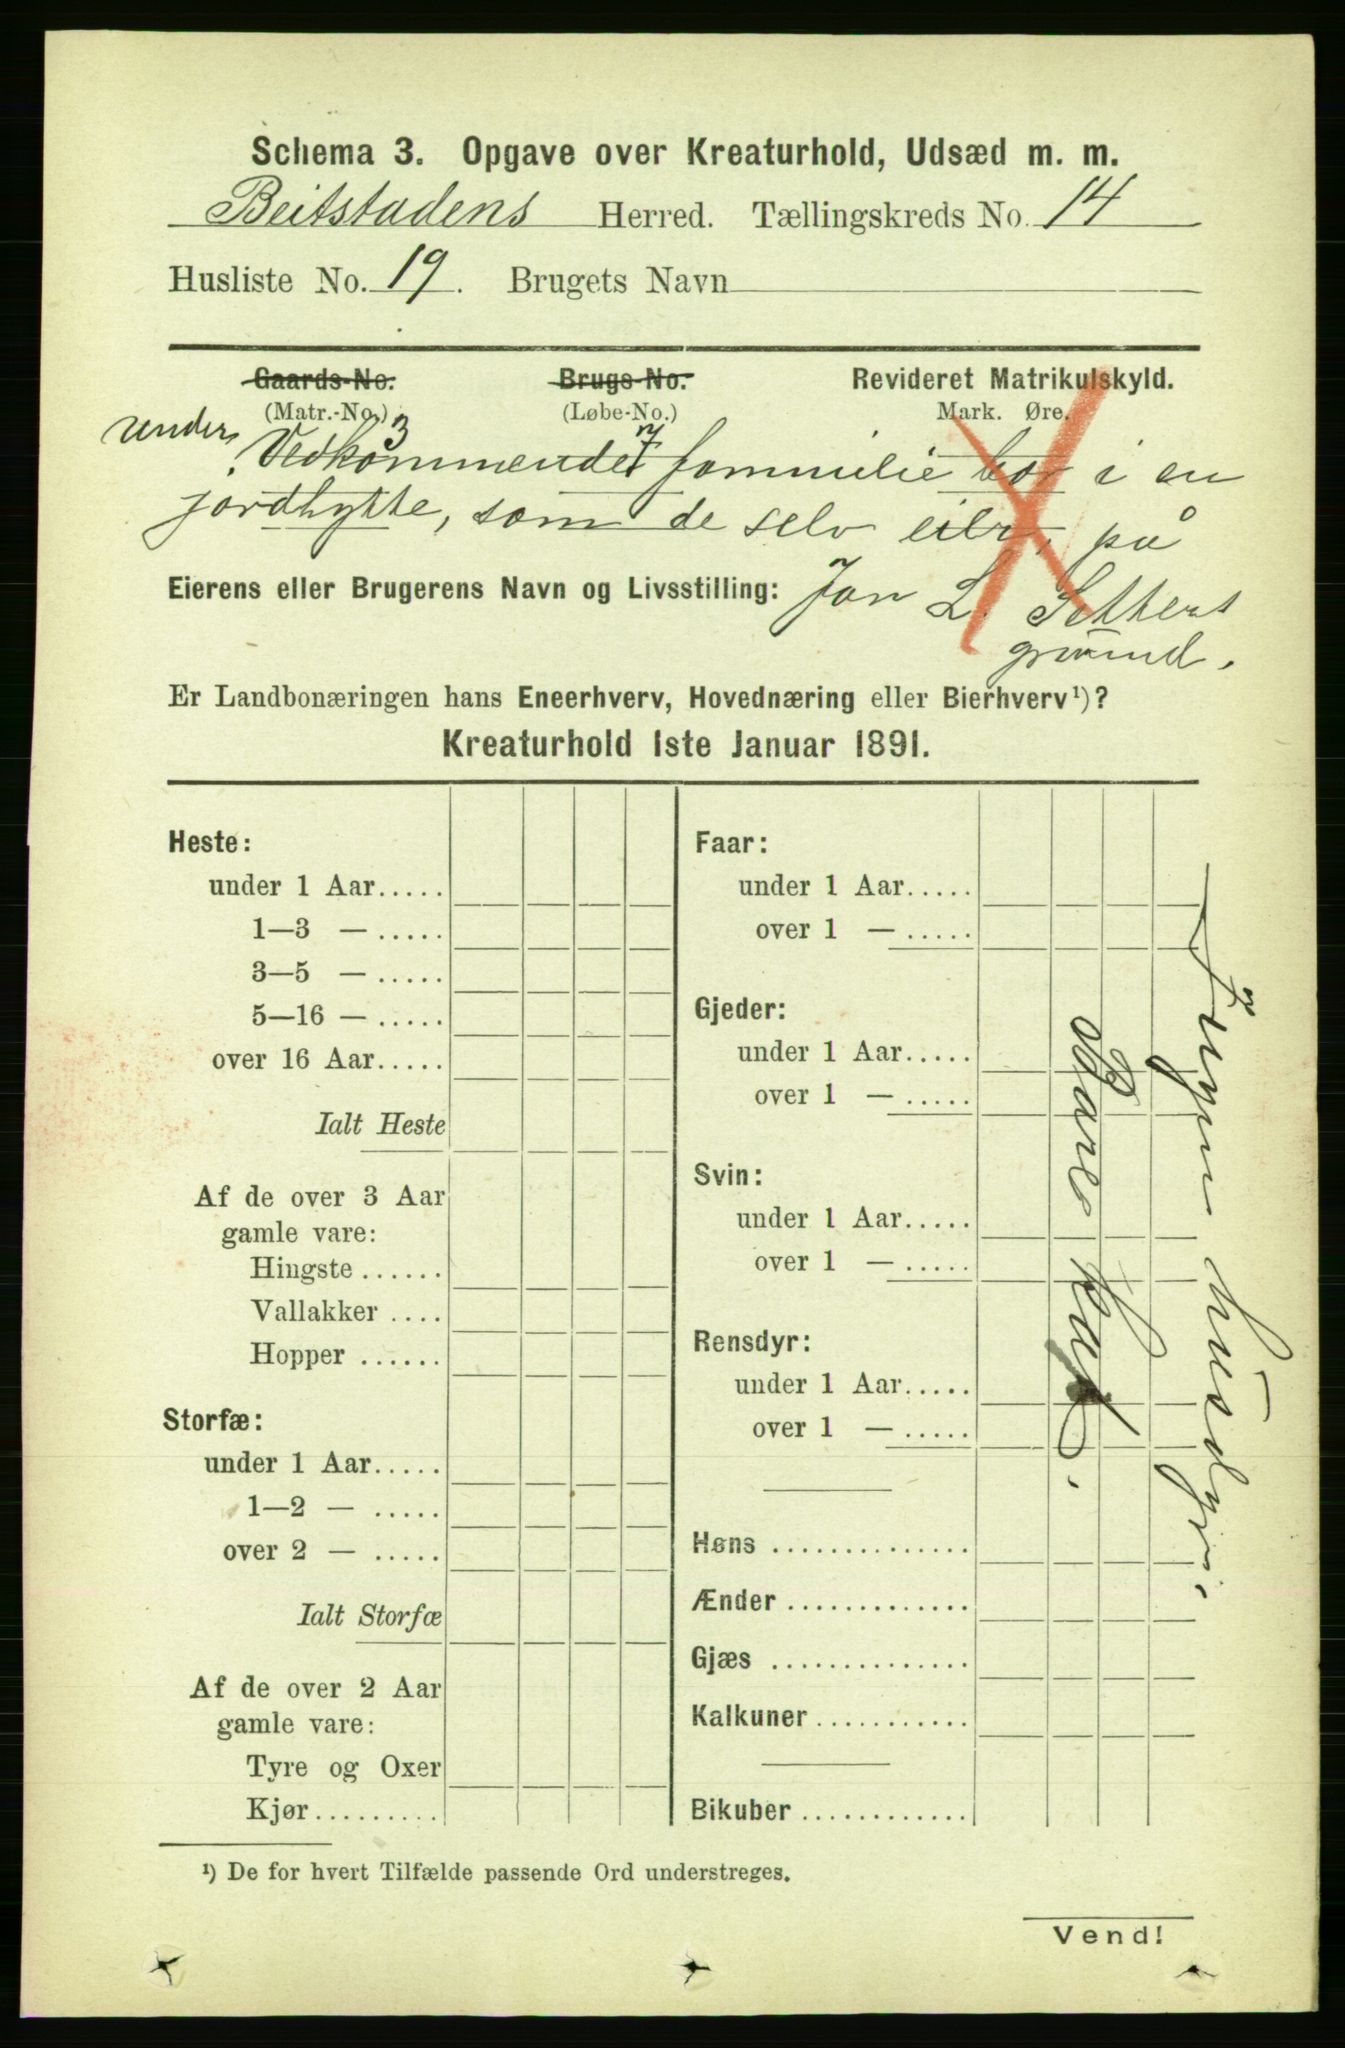 Schema 3. Opgave over Kreaturhold, Udsæd m. m.
Beitstadens Herred. Tællingskreds No. 14
Husliste No. 19. Brugets Navn
Gaards-No. Brugs-No. Revideret Matrikulskyld.
(Matr.-No.) (Løbe-No.) Mark. Øre.
under 3 7
Vedkommende fammilie bor i en
jordhytte, som de selv eier, på
Eierens eller Brugerens Navn og Livsstilling: Jon L.
grund.
Er Landbonæringen hans Eneerhverv, Hovednæring eller Bierhverv¹)?
Kreaturhold 1ste Januar 1891.
Heste:
under 1 Aar.....
1—3 — .....
3—5 — .....
5—16 — .....
over 16 Aar.....
Ialt Heste
Af de over 3 Aar
gamle vare:
Hingste ......
Vallakker ....
Hopper ......
Storfæ:
under 1 Aar.....
1—2 — .....
over 2 — .....
Ialt Storfæ
Af de over 2 Aar
gamle vare:
Tyre og Oxer
Kjør.........
Faar:
under 1 Aar.....
over 1 — .....
Gjeder:
under 1 Aar.....
over 1 — .....
Svin:
under 1 Aar.....
over 1 — .....
Rensdyr:
under 1 Aar.....
over 1 — .....
Høns ..............
Ænder .............
Gjæs ..............
Kalkuner...........
Bikuber ............
Ingen husdyr.
Bare kat.
¹) De for hvert Tilfælde passende Ord understreges.
Vend!